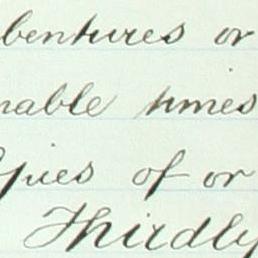 bentures or
nable times
pies of or
Thirdly